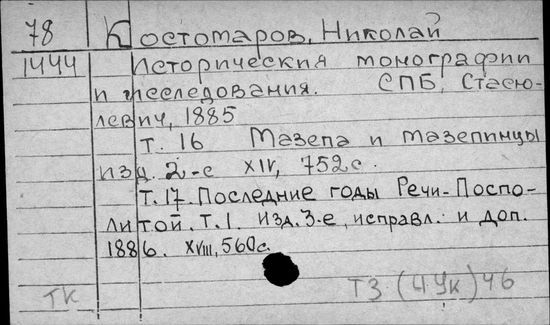 78 Костомаров, Николай
1444 Исторические монографии
и исследования. СПБ, Стасю-
левич, 1885
Т. 16 Мазепа и мазепинцы
изд. 2-е XIV, 752с.
Т. 17. Последние годы Речи-Поспо-
литой. Т. 1. изд. 3-е, исправл. и доп.
1886. XVIII, 560с.
ТК ТЗ (4Ук) 46